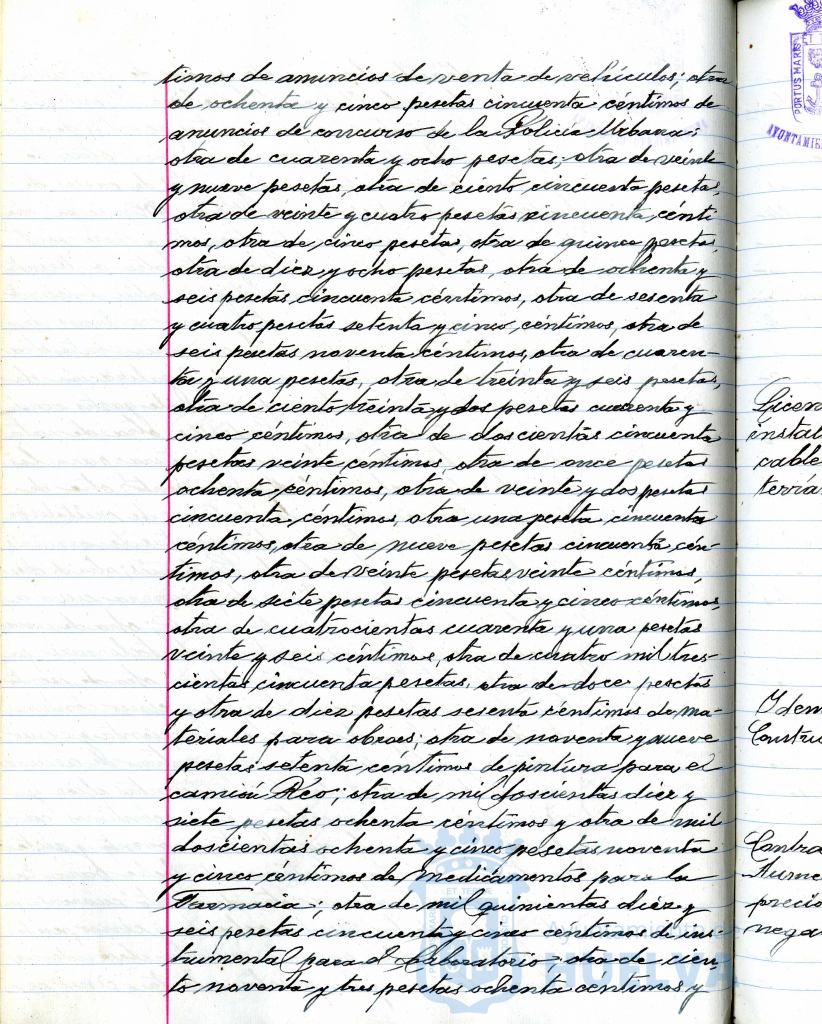 timos de anuncios de venta de vehículos; otra
de ochenta y cinco pesetas cincuenta céntimos de
anuncios de concurso de la Policia Urbana;
otra de cuarenta y ocho pesetas; otra de veinte
y nueve pesetas, otra de ciento cincuenta pesetas,
otra de veinte y cuatro pesetas cincuenta cénti
mos, otra de cinco pesetas, otra de quince pesetas,
otra de diez y ocho pesetas, otra de ochenta y
seis pesetas cincuenta céntimos, otra de sesenta
y cuatro pesetas setenta y cinco céntimos, otra de
seis pesetas noventa céntimos, otra de cuaren-
ta y una pesetas, otra de treinta y seis pesetas,
otra de ciento treinta y dos pesetas cuarenta y
cinco céntimos, otra de doscientas cincuenta
pesetas veinte céntimos, otra de once pesetas
ochenta céntimos, otra de veinte y dos pesetas
cincuenta céntimos, otra una peseta cincuenta
céntimos, otra de nueve pesetas cincuenta cén-
timos, otra de veinte pesetas veinte céntimos,
otra de siete pesetas cincuenta y cinco céntimos,
otra de cuatrocientas cuarenta y una pesetas
veinte y seis céntimos, otra de cuatro mil tres-
cientas cincuenta pesetas, otra de doce pesetas
y otra de diez pesetas sesenta céntimos de ma-
teriales para obras; otra de noventa y nueve
pesetas setenta céntimos de pintura para el
camión Reo; otra de mil doscientas diez y
siete pesetas ochenta céntimos y otra de mil
doscientas ochenta y cinco pesetas noventa
y cinco céntimos de medicamentos para la
Farmacia; otra de mil quinientas diez y
seis pesetas cincuenta y cinco centimos de ins-
trumental para el Laboratorio; otra de cien-
to noventa y tres pesetas ochenta centimos y
PORTUS MARIS
Licen
instal
cable
terrá
Idem
Constru
Contra
Aume
precio
nega
HUELVA